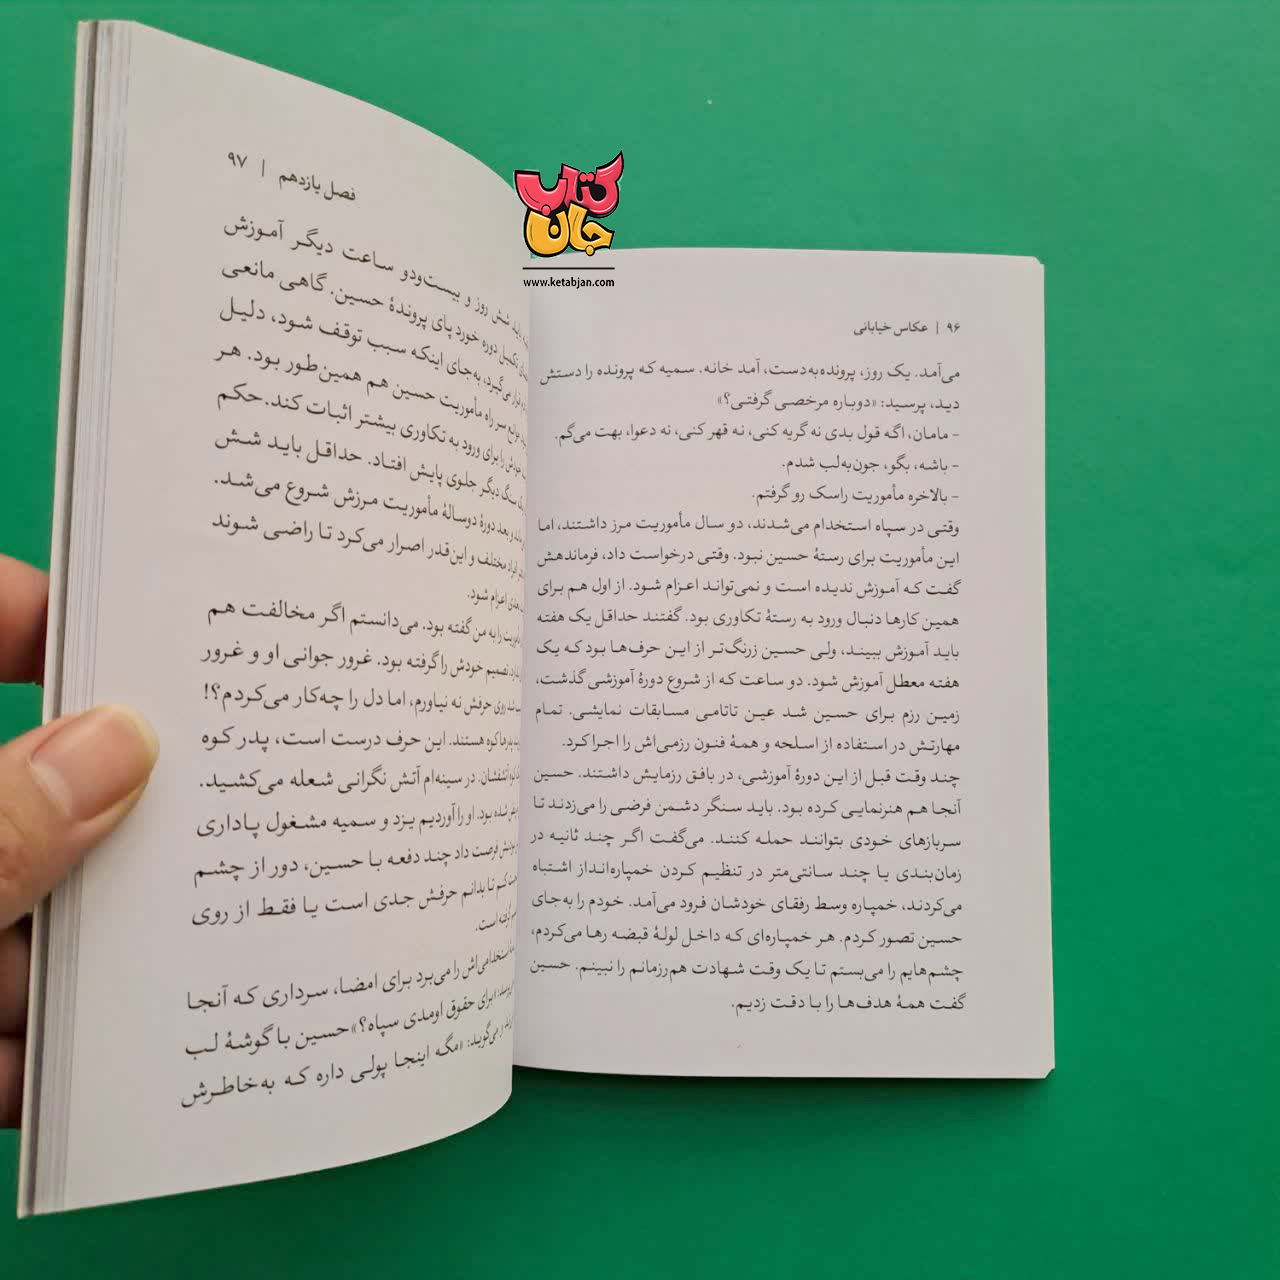 کتاب جان
www.ketabjan.com
۹۶ | عکاس خیابانی
می‌آمد. یک روز، پرونده‌به‌دست، آمد خانه. سمیه که پرونده را دستش
دید، پرسید: «دوباره مرخصی گرفتی؟»
- مامان، اگه قول بدی نه گریه کنی، نه قهر کنی، نه دعوا، بهت می‌گم.
- باشه، بگو، جون‌به‌لب شدم.
- بالاخره مأموریت راسک رو گرفتم.
وقتی در سپاه استخدام می‌شدند، دو سال مأموریت مرز داشتند، اما
این مأموریت برای رستهٔ حسین نبود. وقتی درخواست داد، فرماندهش
گفت که آموزش ندیده است و نمی‌تواند اعزام شود. از اول هم برای
همین کارها دنبال ورود به رستهٔ تکاوری بود. گفتند حداقل یک هفته
باید آموزش ببیند، ولی حسین زرنگ‌تر از این حرف‌ها بود که یک
هفته معطل آموزش شود. دو ساعت که از شروع دورهٔ آموزشی گذشت،
زمین رزم برای حسین شد عین تاتامی مسابقات نمایشی. تمام
مهارتش در استفاده از اسلحه و همهٔ فنون رزمی‌اش را اجرا کرد.
چند وقت قبل از این دورهٔ آموزشی، در بافق رزمایش داشتند. حسین
آنجا هم هنرنمایی کرده بود. باید سنگر دشمن فرضی را می‌زدند تا
سربازهای خودی بتوانند حمله کنند. می‌گفت اگر چند ثانیه در
زمان‌بندی یا چند سانتی‌متر در تنظیم کردن خمپاره‌انداز اشتباه
می‌کردند، خمپاره وسط رفقای خودشان فرود می‌آمد. خودم را به‌جای
حسین تصور کردم. هر خمپاره‌ای که داخل لولهٔ قبضه رها می‌کردم،
چشم‌هایم را می‌بستم تا یک وقت شهادت هم‌رزمانم را نبینم. حسین
گفت همهٔ هدف‌ها را با دقت زدیم.
فصل یازدهم | ۹۷
باید شش روز و بیست‌ودو ساعت دیگر آموزش
تکمیل دوره خورد پای پروندهٔ حسین. گاهی مانعی
قرار می‌گیرد، به‌جای اینکه سبب توقف شود، دلیل
موانع سر راه مأموریت حسین هم همین‌طور بود. هر
خودش را برای ورود به تکاوری بیشتر اثبات کند. حکم
یک سنگ دیگر جلوی پایش افتاد. حداقل باید شش
و بعد دورهٔ دوسالهٔ مأموریت مرزش شروع می‌شد.
افراد مختلف و این‌قدر اصرار می‌کرد تا راضی شوند
بعدی اعزام شود.
مأموریت را به من گفته بود. می‌دانستم اگر مخالفت هم
تصمیم خودش را گرفته بود. غرور جوانی او و غرور
روی حرفش نه نیاورم، اما دل را چه‌کار می‌کردم؟!
پدرها کوه هستند. این حرف درست است، پدر کوه
آتشفشان. در سینه‌ام آتش نگرانی شعله می‌کشید.
شده بود. او را آوردیم یزد و سمیه مشغول پاداری
فرصت داد چند دفعه با حسین، دور از چشم
کنم تا بدانم حرفش جدی است یا فقط از روی
گرفته است.
استخدامی‌اش را می‌برد برای امضا، سرداری که آنجا
«برای حقوق اومدی سپاه؟» حسین با گوشهٔ لب
و می‌گوید: «مگه اینجا پولی داره که به‌خاطرش